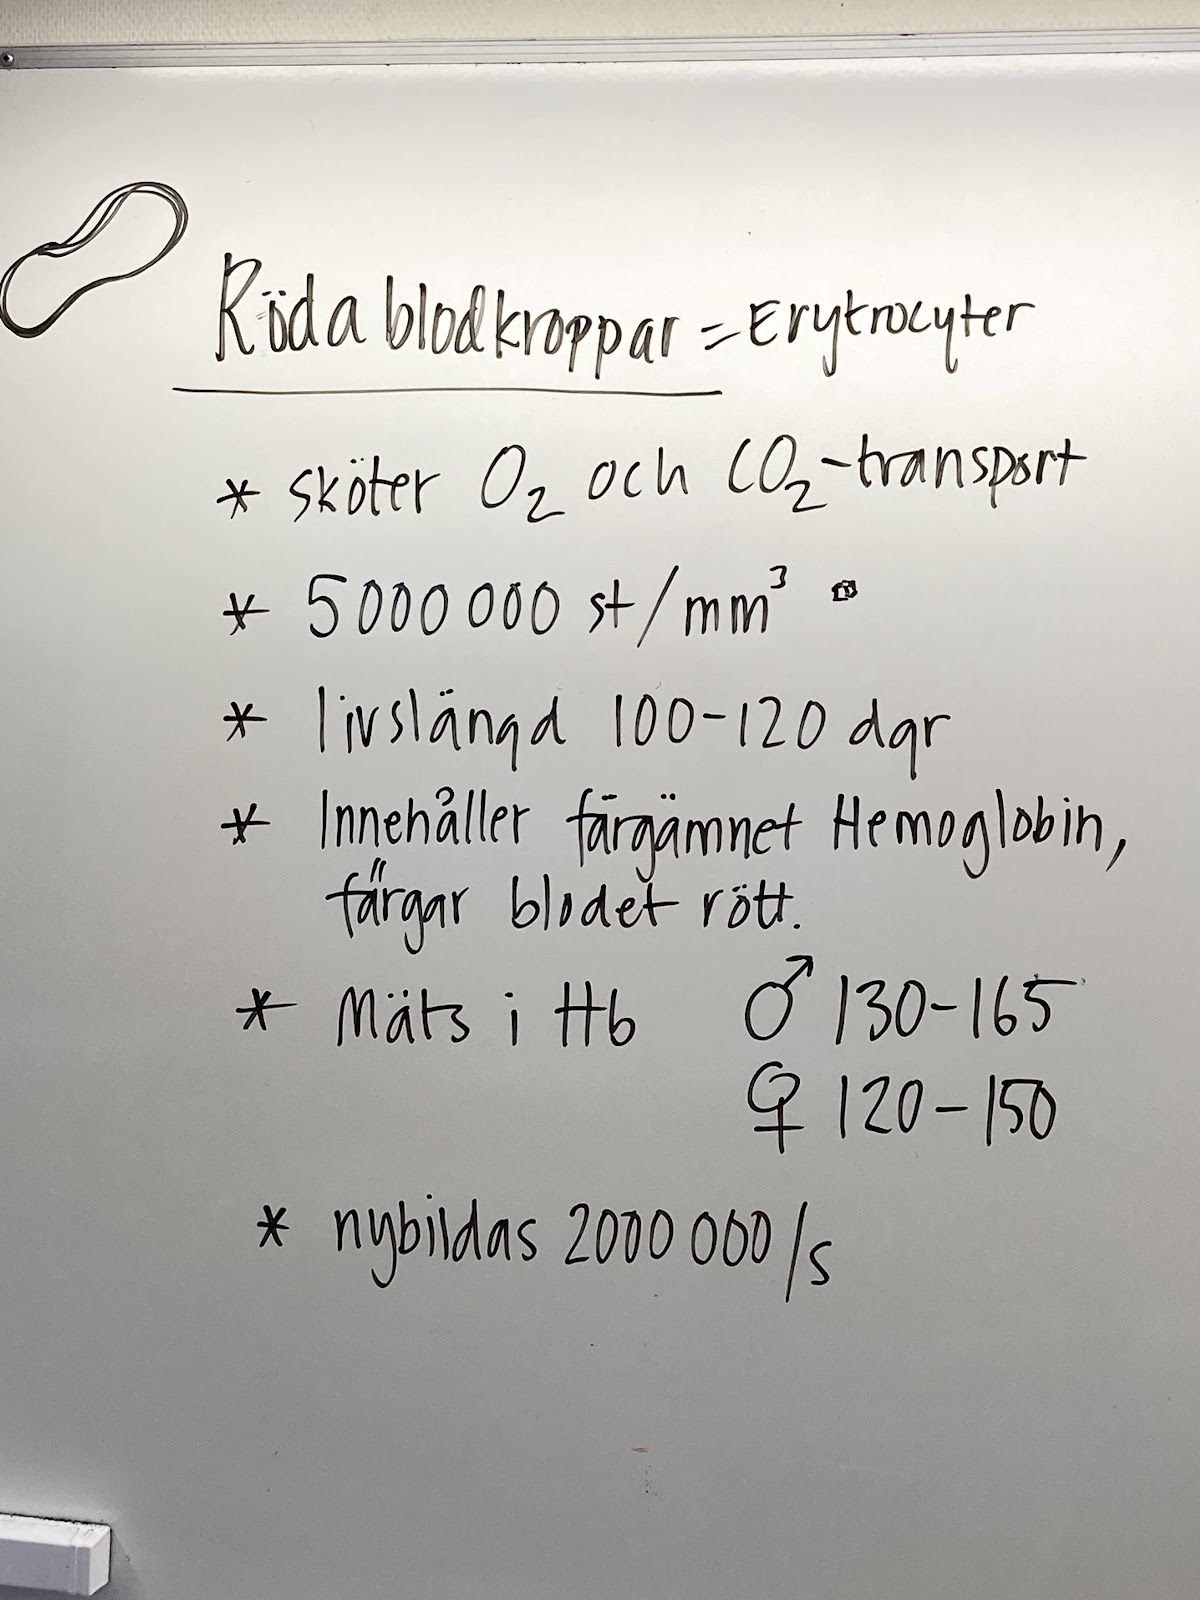 Röda blodkroppar = Erytrocyter
* sköter O₂ och CO₂-transport
* 5000 000 st/mm³
* livslängd 100-120 dgr
* Innehåller färgämnet Hemoglobin,
färgar blodet rött.
* Mäts i Hb ♂ 130-165
♀ 120-150
* nybildas 2000 000/s